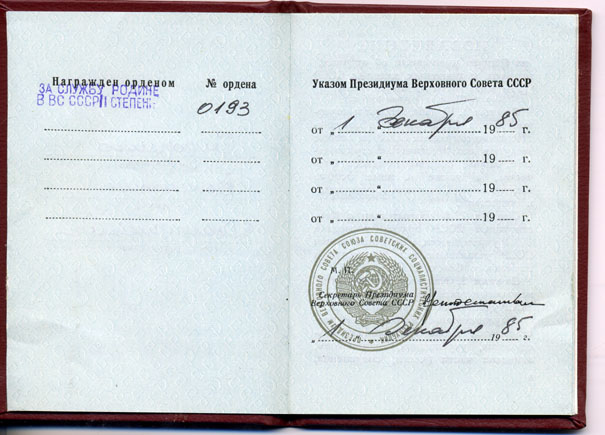 Награжден орденом
№ ордена
ЗА СЛУЖБУ РОДИНЕ
В ВС СССР II СТЕПЕНИ
0193
Указом Президиума Верховного Совета СССР
от „ 1 “ Декабря 1985 г.
от „ “ 19 г.
от „ “ 19 г.
от „ “ 19 г.
М. П.
Секретарь Президиума
Верховного Совета СССР
„ 1 “ Декабря 1985 г.